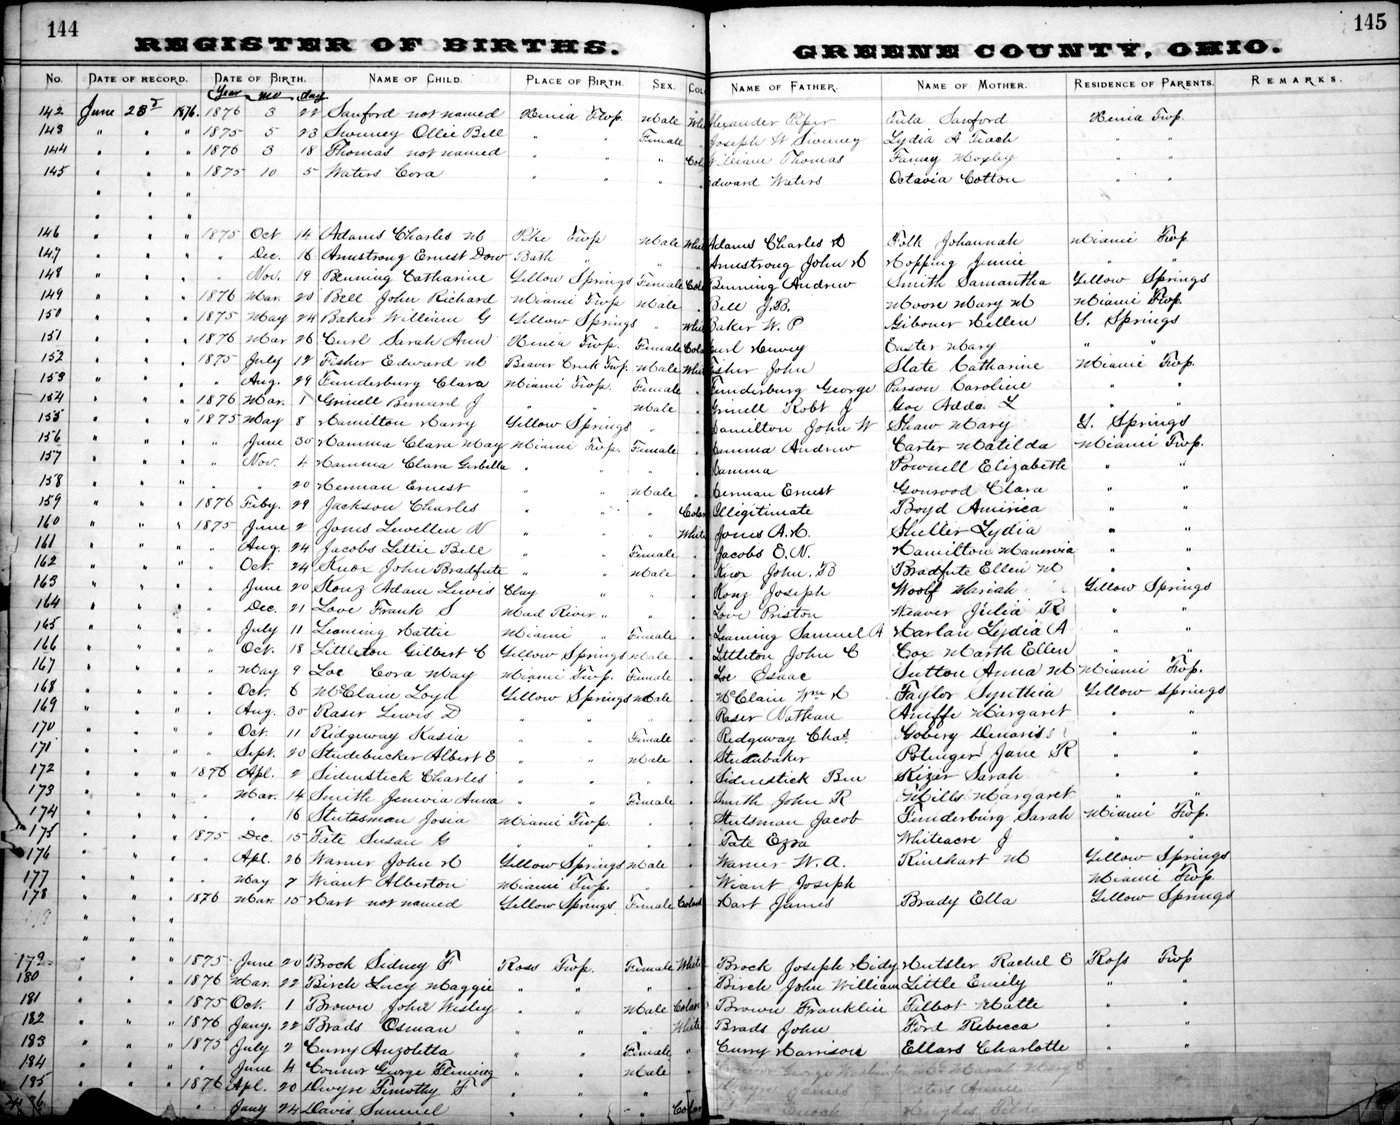 144
REGISTER OF BIRTHS.
GREENE COUNTY, OHIO.
145
No. DATE OF RECORD. DATE OF BIRTH. NAME OF CHILD. PLACE OF BIRTH. SEX. COL NAME OF FATHER. NAME OF MOTHER. RESIDENCE OF PARENTS. REMARKS.
Year mo day
142 June 23 1876. 1876 3 22 Sanford not named Xenia Twp Male Whi lexander Piper Eula Sanford Xenia Twp.
143 " " " 1875 5 23 Swiney Ollie Bell " " Female " Joseph W Swiney Lydia A Teach " "
144 " " " 1876 3 18 Thomas not named " " " Col William Thomas Fanny Moxley " "
145 " " " 1875 10 5 Waters Cora " " " " dward Waters Octavia Cotton " "
" " "
" " "
146 " " " 1875 Oct 14 Adams Charles M Pike Twp Male Whi Adams Charles M Folk Johannah Miami Twp
147 " " " " Dec. 16 Armstrong Ernest Dow Bath " " " Armstrong John M Hopping Jennie " "
148 " " " " Nov. 19 Benning Catharine Yellow Springs Female Col Benning Andrew Smith Samantha Yellow Springs
149 " " " 1876 Mar. 20 Bell John Richard Miami Twp Male " Bell J.B. Moore Mary M Miami Twp.
150 " " " 1875 May 24 Baker William G Yellow Springs " Whi Baker W. P Giboner Hellen Y. Springs
151 " " " 1876 Mar 26 Curl Sarah Ann Xenia Twp. Female Col url Harvey Easter Mary " "
152 " " " 1875 July 12 Fisher Edward M Beaver Creek Twp. Male Whi isher John Slate Catharine Miami Twp.
153 " " " " Aug. 29 Funderburg Clara Miami Twp. Female " Funderburg George Parson Caroline " "
154 " " " 1876 Mar. 1 Grinell Bernard J " " Male " Grinell Robt J Goe Adda L " "
155 " " " 1875 May 8 Hamilton Harry Yellow Springs " " Hamilton John W Shaw Mary Y. Springs
156 " " " " June 30 Hamma Clara May Miami Twp. Female " Hamma Andrew Carter Matilda Miami Twp.
157 " " " " Nov. 4 Hamma Clara " " " " Hamma Pownell Elizabeth " "
158 " " " " " 20 Herman Ernest " " Male " Herman Ernest Clara " "
159 " " " 1876 Feby. 29 Jackson Charles " " " Colar Illegitimate Boyd America " "
160 " " " 1875 June 2 Jones Lewellen N " " " White Jones A.H. Sheller Lydia " "
161 " " " " Aug. 24 Jacobs Lettie Bell " " Female " Jacobs E.N. Hamilton " "
162 " " " " Oct. 24 Knox John Bradfute " " Male " Knox John. B Bradfute Ellen M " "
163 " " " " June 20 Konz Adam Lewis Clay " " " Konz Joseph Woolf Mariah Yellow Springs
164 " " " " Dec. 21 Love Frank S Mad River " " " Love Priston Weaver Julia R " "
165 " " " " July 11 Leaming Hattie Miami " Female " Leaming Samuel A Harlan Lydia A " "
166 " " " " Oct. 18 Littleton Gilbert C Yellow Springs Male " Littleton John C Cox Marth Ellen " "
167 " " " " May 9 Loe Cora May Miami Twp. Female " Loe Isaac Sutton Anna M Miami Twp.
168 " " " " Oct. 6 McClain Loyd Yellow Springs Male " McClain Wm H Taylor Synthia Yellow Springs
169 " " " " Aug. 30 Raser Lewis D " " " " Raser Nathan Margaret " "
170 " " " " Oct. 11 Ridgeway Kasia " " Female " Ridgeway Chas. " "
171 " " " " Sept. 20 Studebucker Albert E " " Male " Studabaker Potenger Jane R " "
172 " " " 1876 Apl. 2 Sidenstick Charles " " " " Sidenstick Ben Kizer Sarah " "
173 " " " " Mar. 14 Smith Jenevia Anna " " Female " Smith John R Mills Margaret " "
174 " " " " " 16 Stutsman Josia Miami Twp. " " Stutsman Jacob Funderburg Sarah Miami Twp.
175 " " " 1875 Dec. 15 Tate Susan G " " " " Tate Ezra Whiteacre J " "
176 " " " " Apl. 26 Warner John H Yellow Springs Male " Warner W. A. Rinehart M Yellow Springs
177 " " " " May 7 Wiant Alberton Miami Twp. " " Wiant Joseph Miami Twp.
178 " " " 1876 Mar. 15 Hart not named Yellow Springs Female Colard Hart James Brady Ella Yellow Springs
" " "
" " "
179 " " " 1875 June 20 Brock Sidney F Ross Twp. Female White Brock Joseph Hidy Hutsler Rachel E Ross Twp
180 " " " 1876 Mar. 22 Birch Lucy Maggie " " " " Birch John William Little Emily " "
181 " " " 1875 Oct. 1 Brown John Wesley " " Male Colar Brown Franklin Talbot Matte " "
182 " " " 1876 Jany. 22 Brads Osman " " " White Brads John Ford Rebecca " "
183 " " " 1875 July 2 Curry Anzoletta " " Female " Curry Harrison Ellars Charlotte " "
184 " " " " June 4 Connor George Fleming " " Male "
185 " " " 1876 Apl. 20 Dwyre Timothy F " " " "
" " Jany 24 Davis Samuel " " " Colar